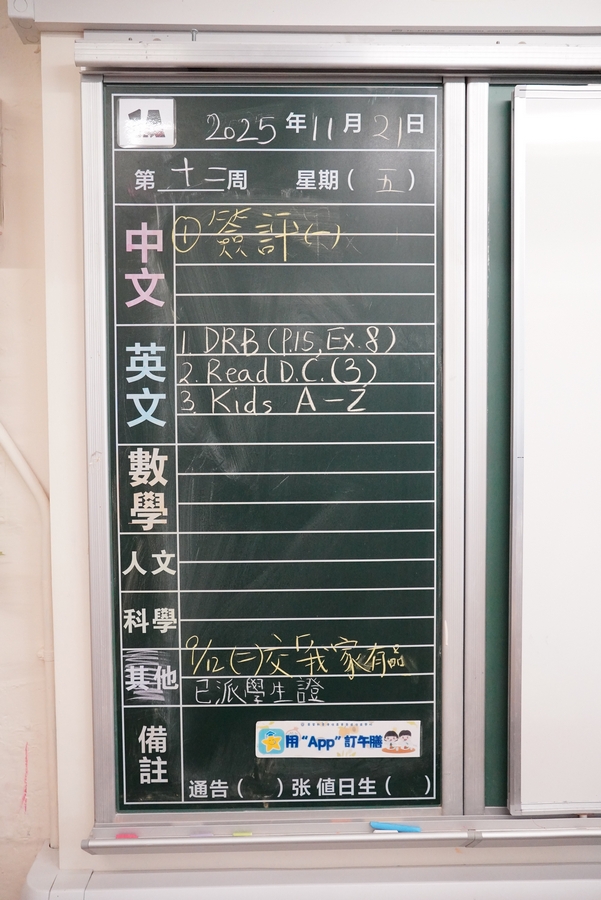 1A
2025年11月21日
第十三周 星期(五)
中文
① 簽評(一)
英文
1. DRB (P.15, Ex. 8)
2. Read D.C. (3)
3. Kids A-Z
數學
人文
科學
其他
9/12 (二)交「我家有品
已派學生證
備註
用 “App” 訂午膳
通告( )张 值日生( )